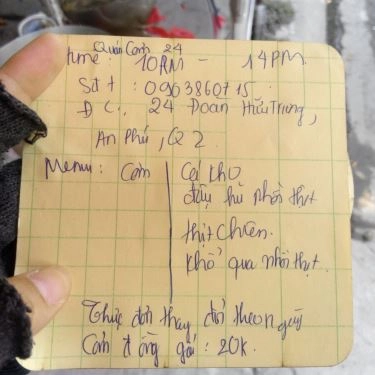 Quán Cơm 24
time: 10AM - 14PM
Sđt: 0903860715
Đ C: 24 Đoàn Hữu Trưng,
An Phú, Q 2
Menu: Cơm Cá kho
đậu hũ nhồi thịt
thịt chiên.
khổ qua nhồi thịt.
Thực đơn thay đổi theo ngày
Cơm đồng giá: 20k.